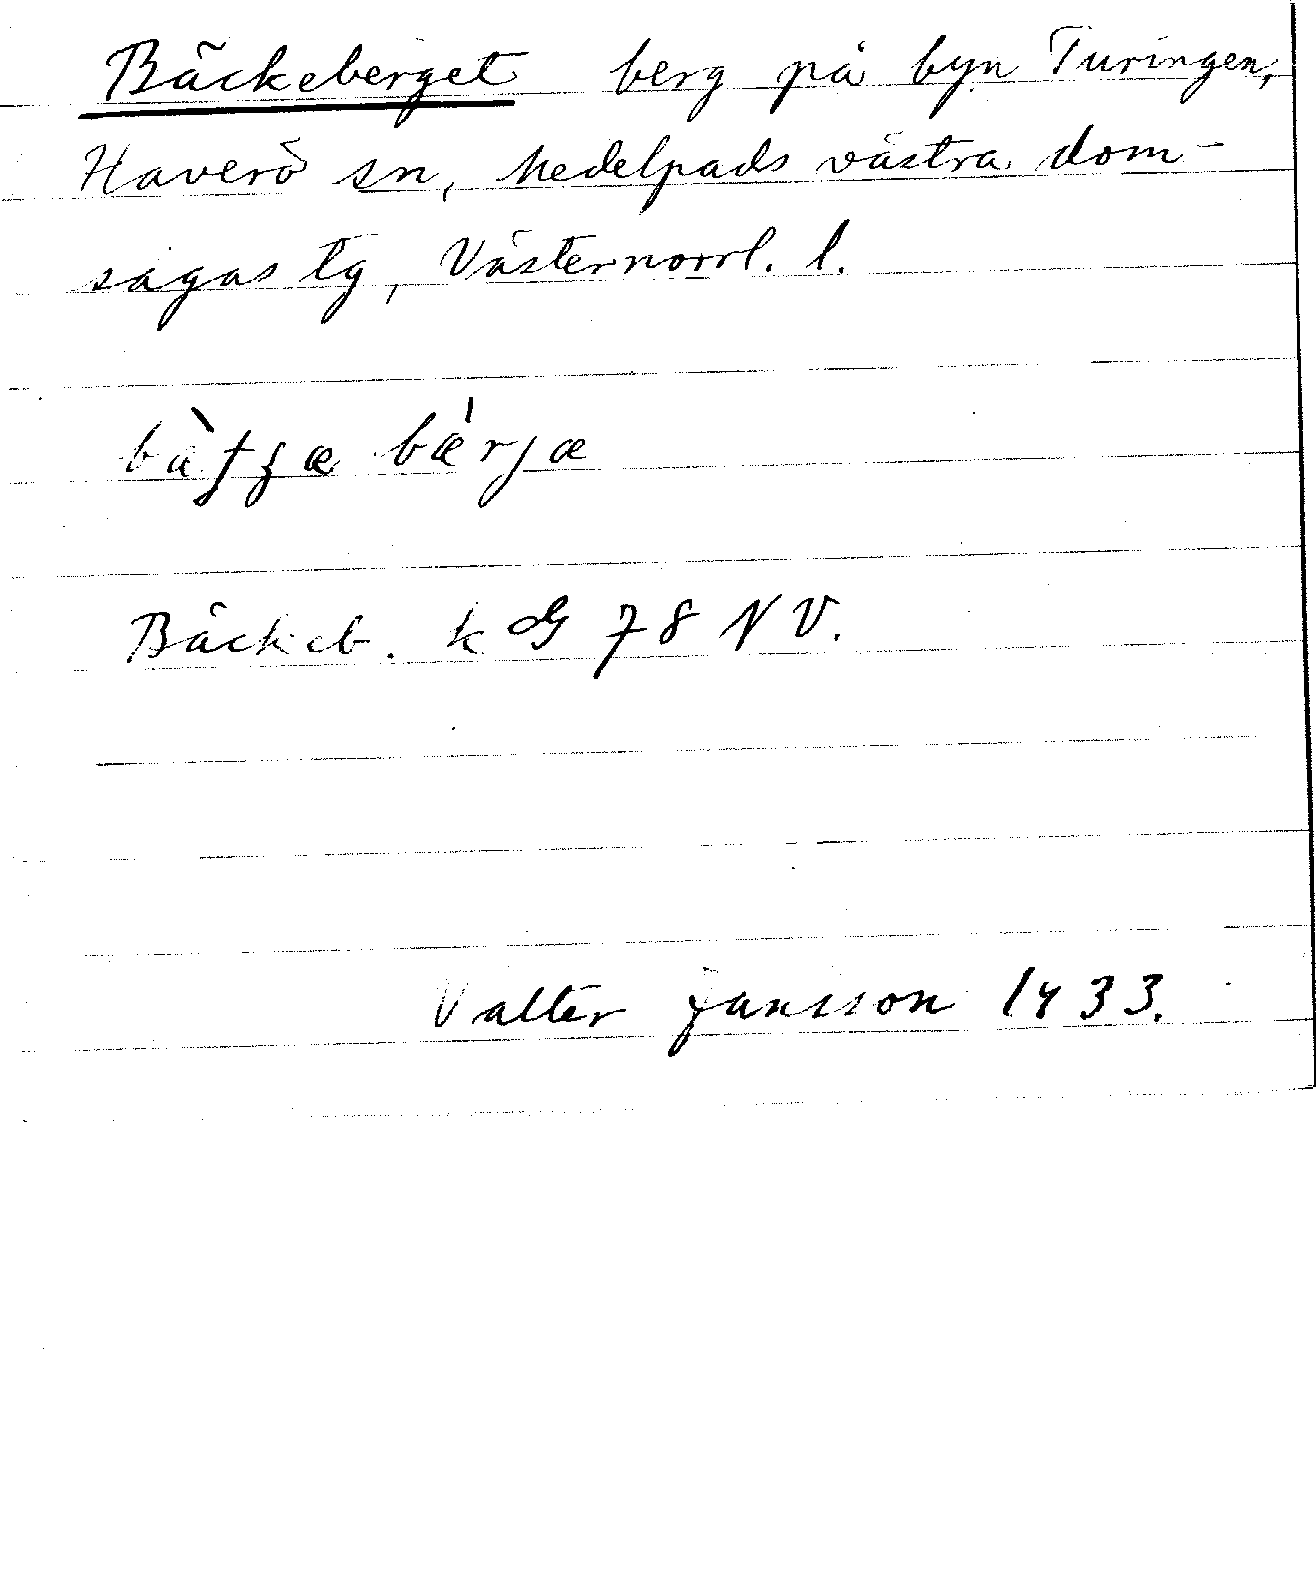 Bäckeberget berg på byn Turingen,
Haverö sn, Medelpads västra dom-
sagas tg, Västernorrl. l.
Bäckeb. k G 78 NV.
Valter Jansson 1933.